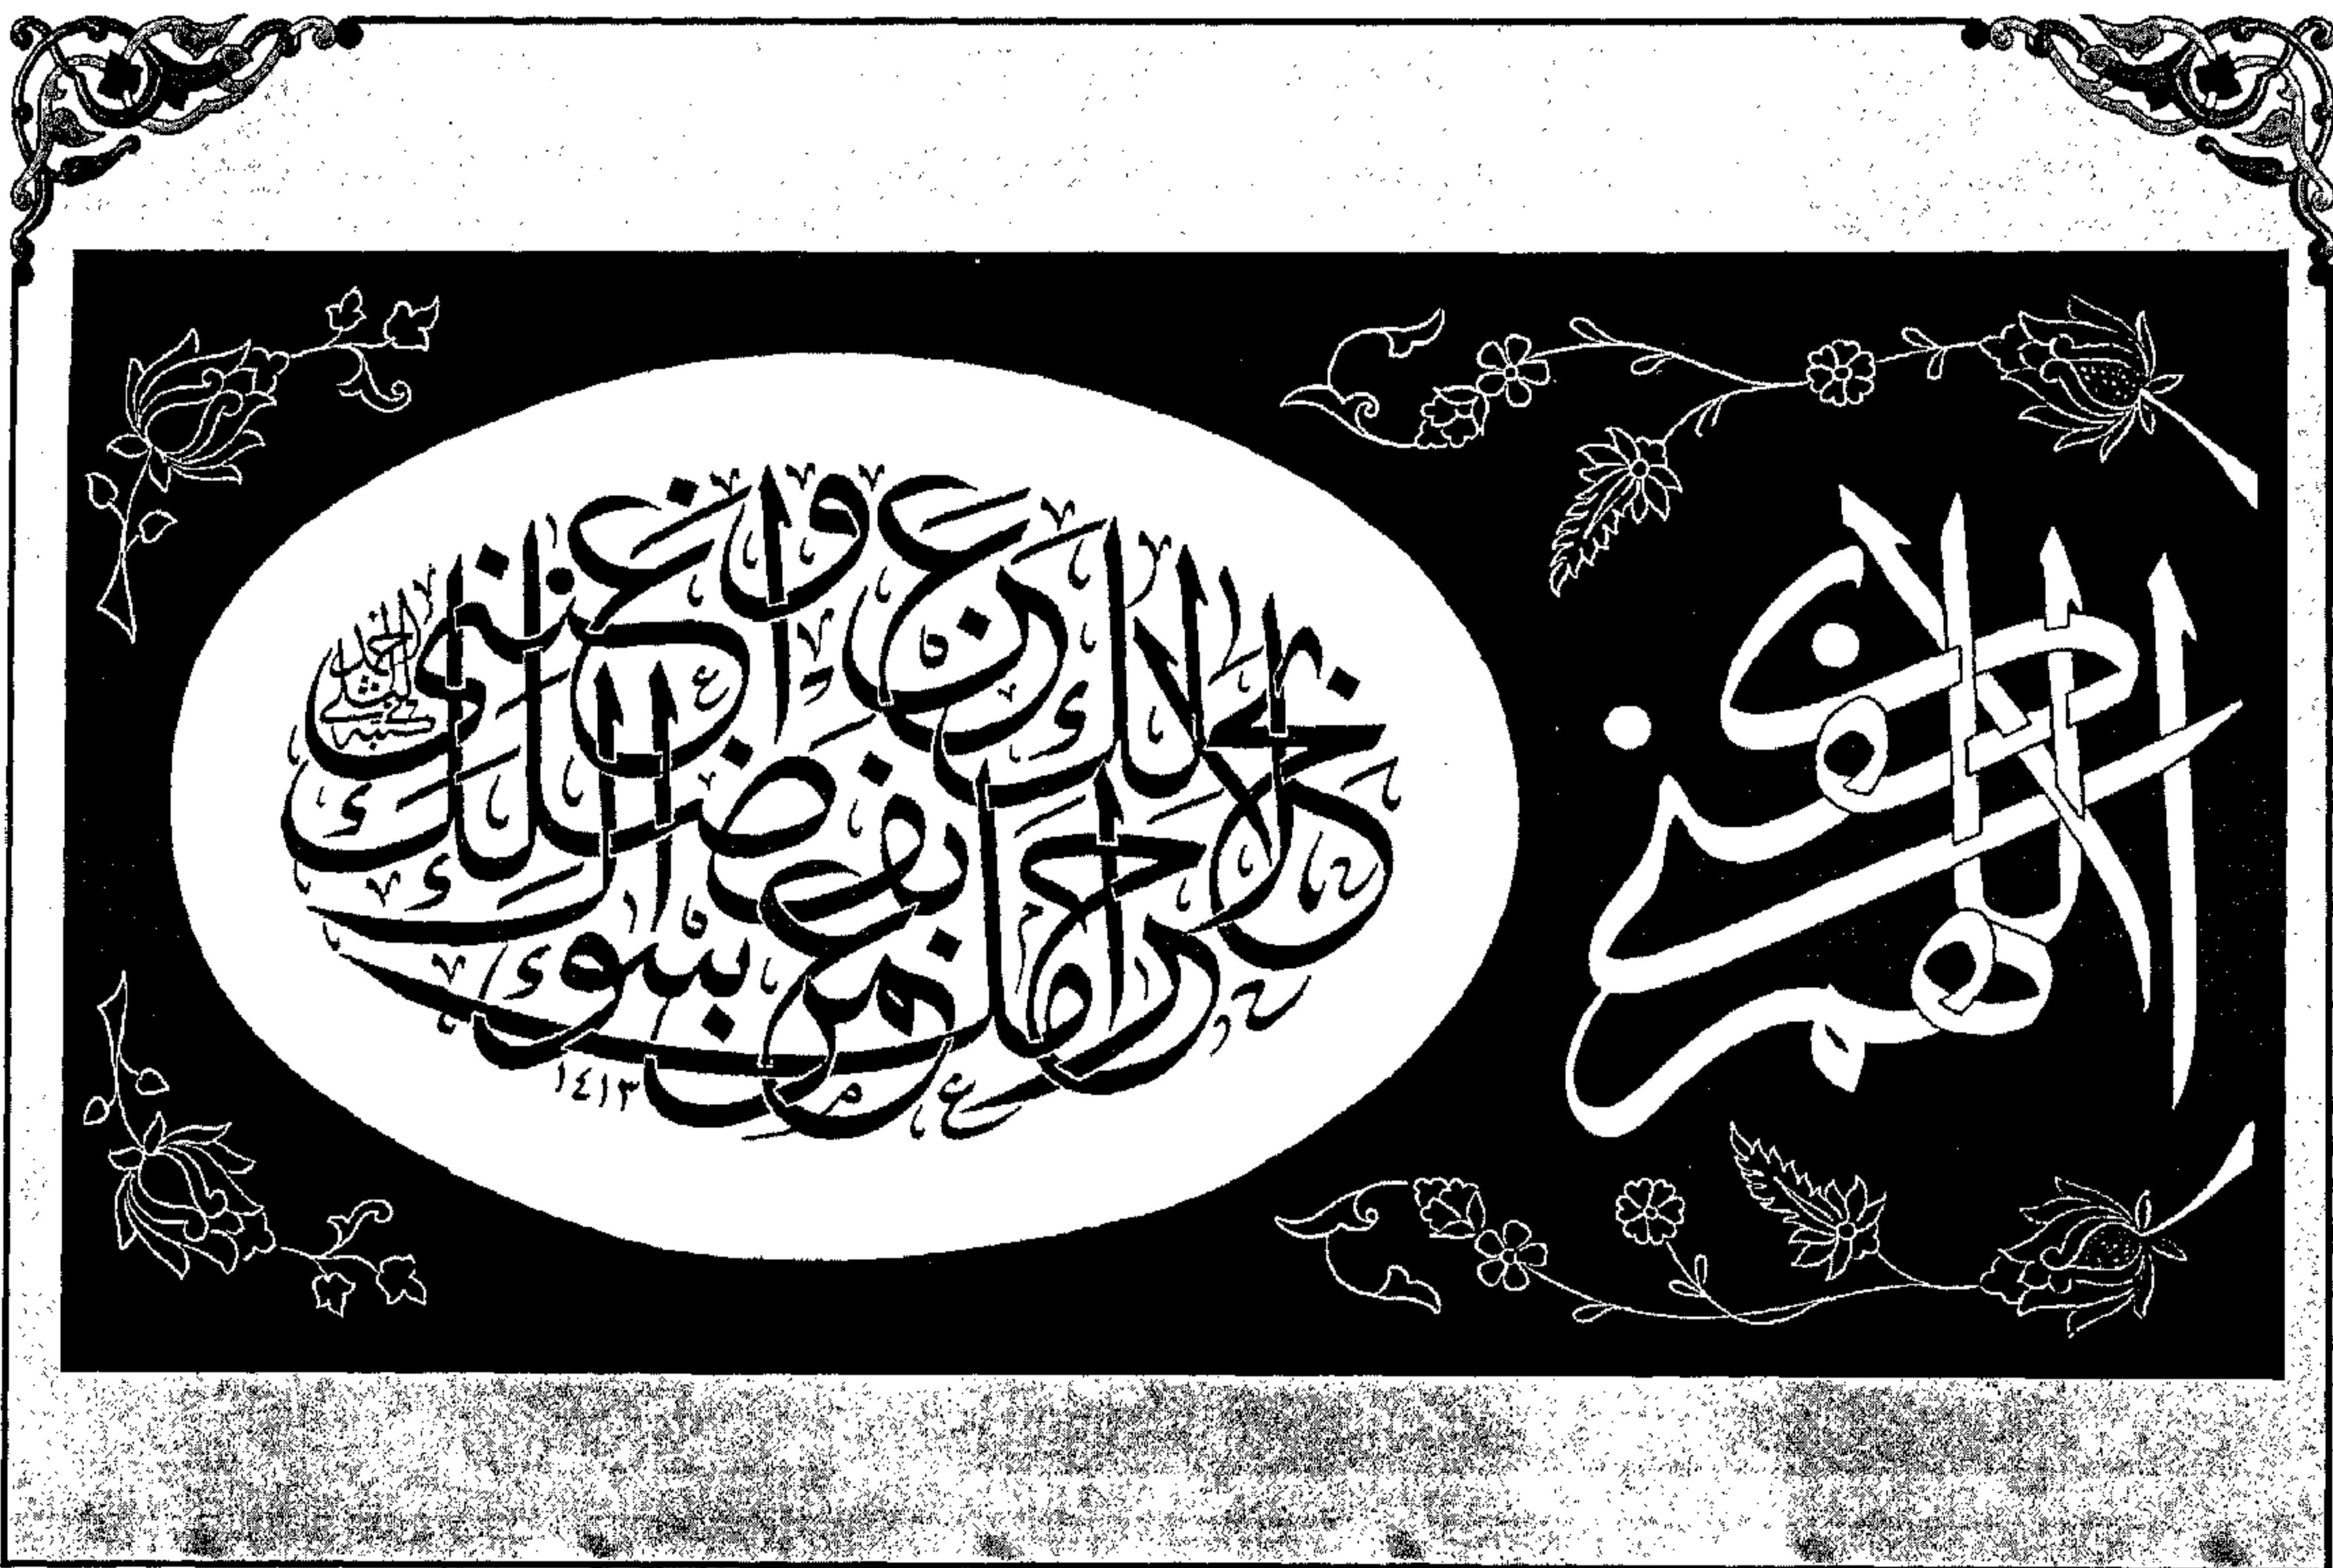 اللهم اكفني
بحلالك عن حرامك وأغنني بفضلك عمن سواك
١٤١٣